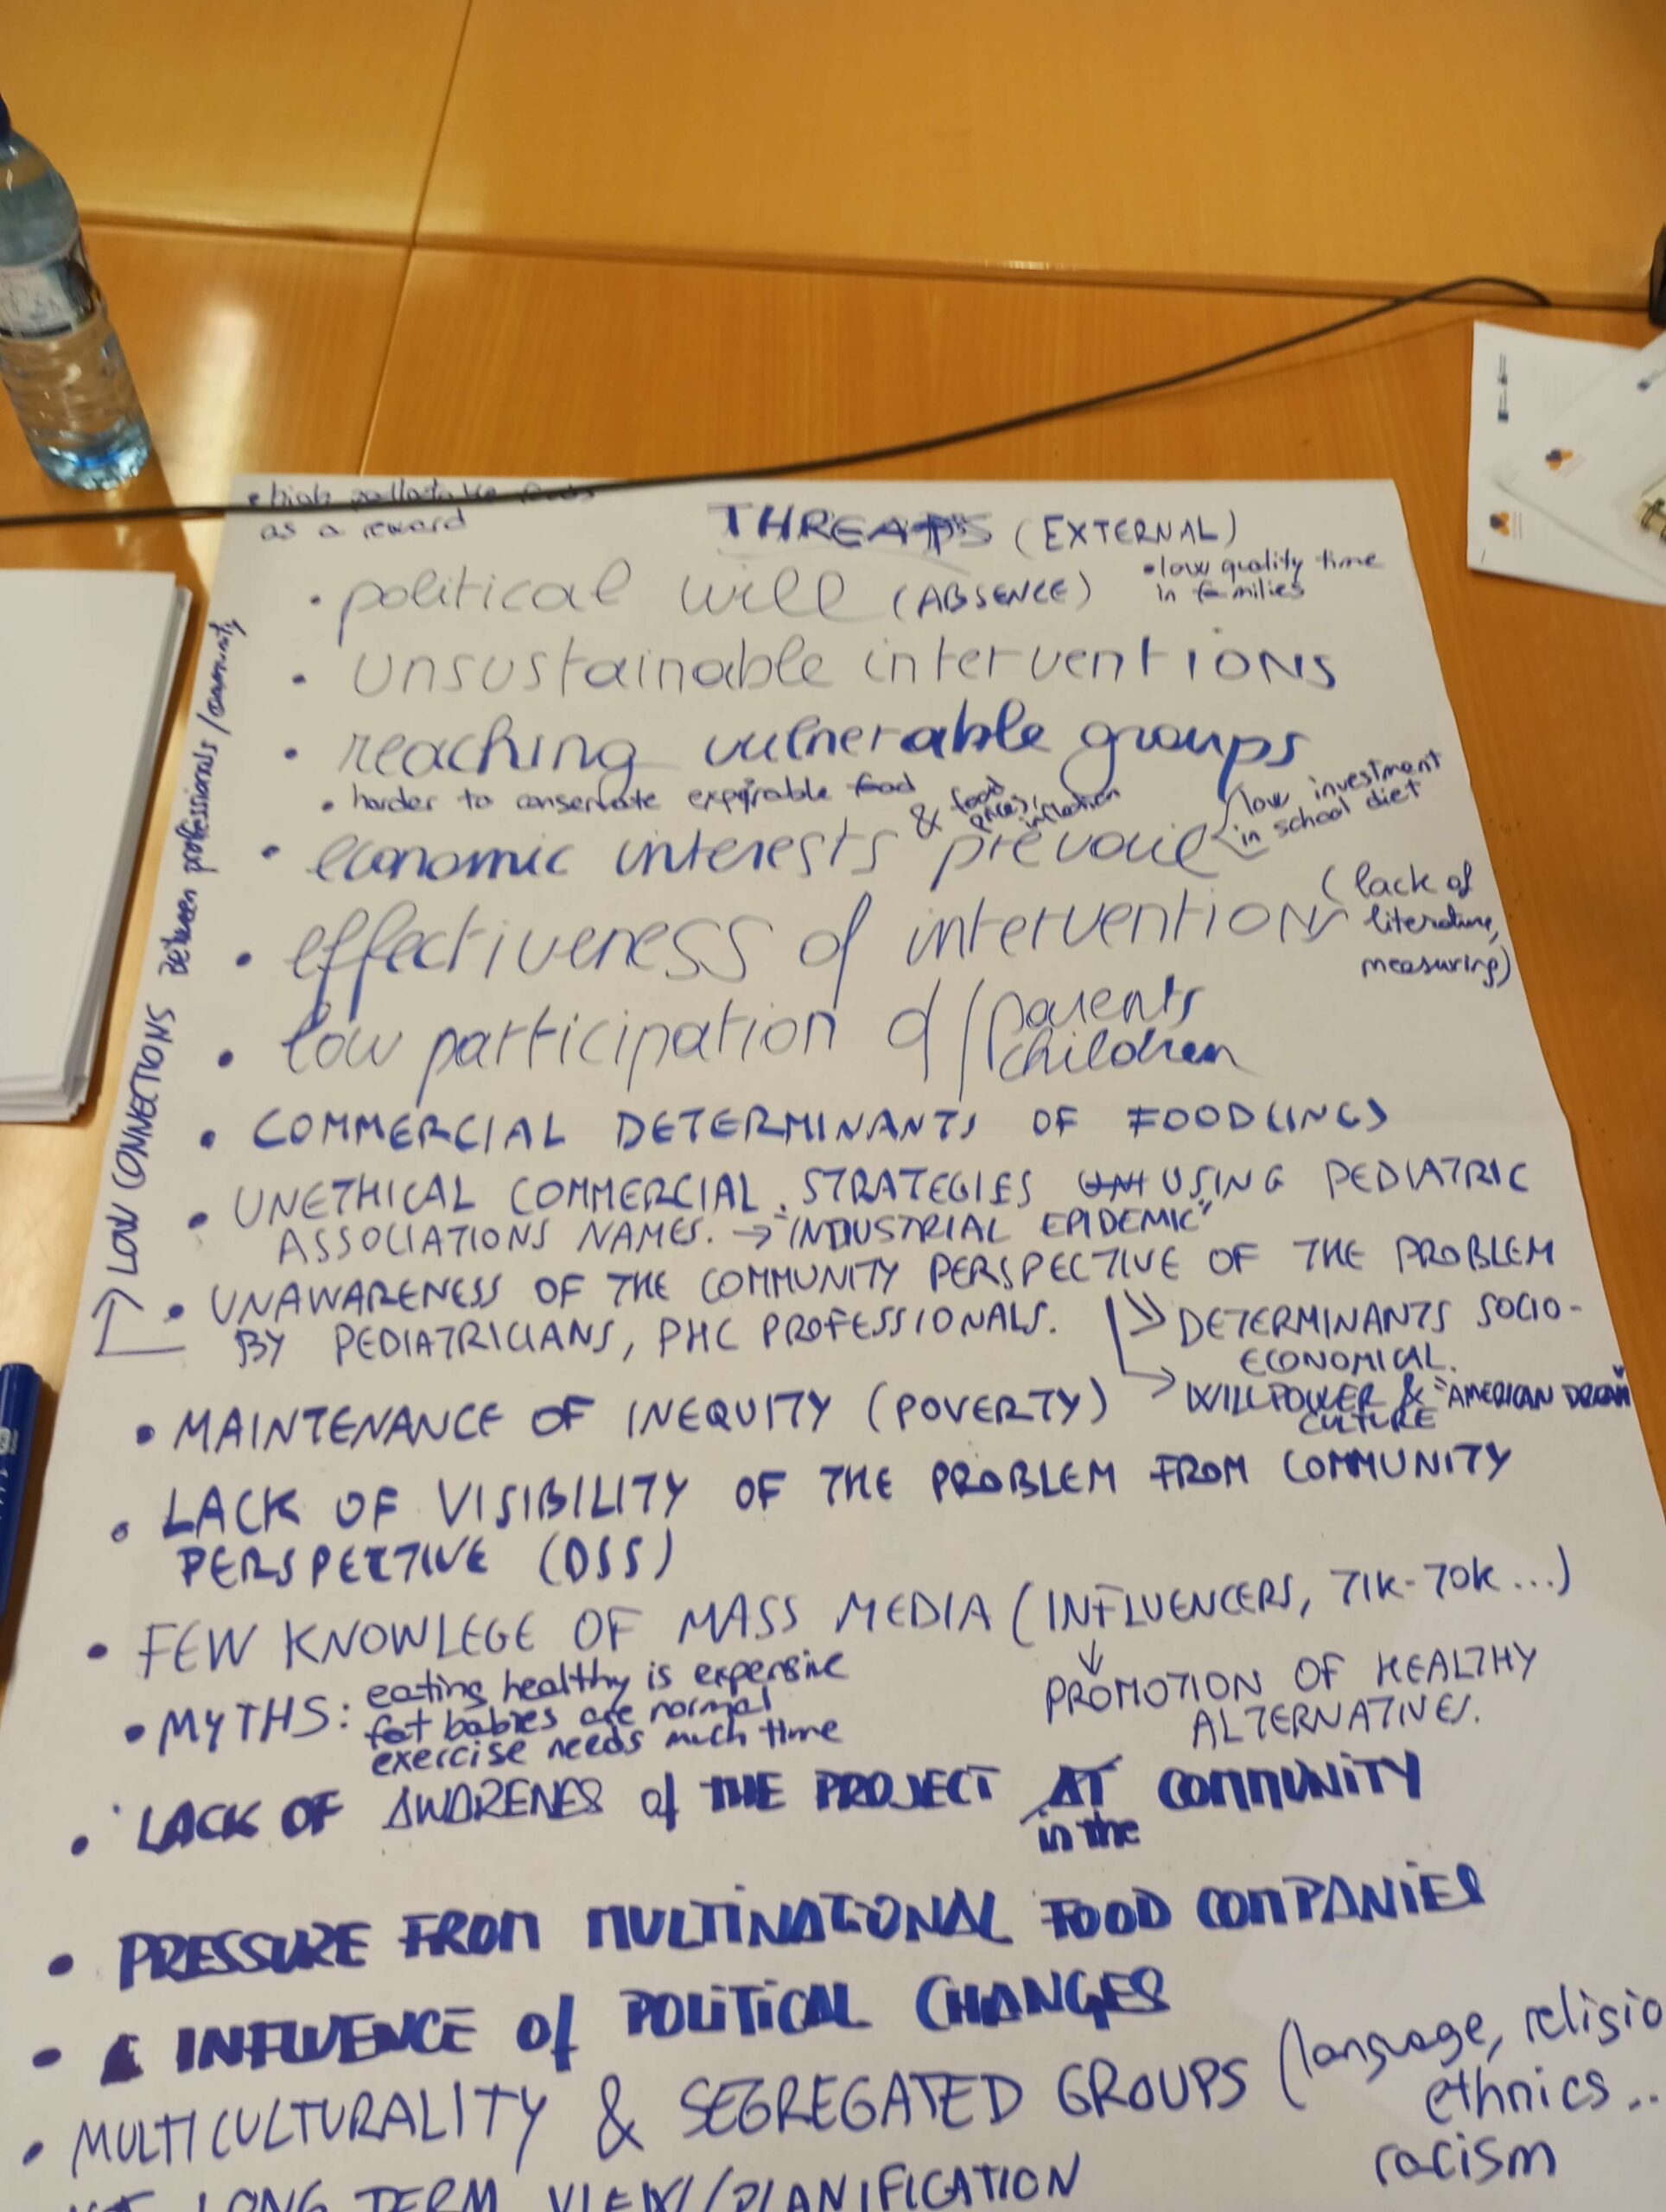 • high pallatable foods
as a reward
THREATS (EXTERNAL)
• low quality time
in families
• political will (ABSENCE)
• unsustainable interventions
• reaching vulnerable groups
• harder to conservate expirable food
& food
prices/
inflation
low investment
in school diet
• economic interests prevail
• effectiveness of interventions
(lack of
literature,
measuring)
• low participation of / parents
children
• COMMERCIAL DETERMINANTS OF FOOD(ING)
• UNETHICAL COMMERCIAL STRATEGIES USING PEDIATRIC
ASSOCIATIONS NAMES. → "INDUSTRIAL EPIDEMIC"
• UNAWARENESS OF THE COMMUNITY PERSPECTIVE OF THE PROBLEM
BY PEDIATRICIANS, PHC PROFESSIONALS.
→ DETERMINANTS SOCIO-
ECONOMICAL.
→ WILLPOWER & "AMERICAN DREAM"
CULTURE
→ LOW CONNECTIONS between professionals/community
• MAINTENANCE OF INEQUITY (POVERTY)
• LACK OF VISIBILITY OF THE PROBLEM FROM COMMUNITY
PERSPECTIVE (DSS)
• FEW KNOWLEGE OF MASS MEDIA (INFLUENCERS, TIK-TOK...)
↓
PROMOTION OF HEALTHY
ALTERNATIVES.
• MYTHS: eating healthy is expensive
fat babies are normal
exercise needs much time
• LACK OF AWARENES of THE PROJECT AT COMMUNITY
in the
• PRESSURE FROM MULTINATIONAL FOOD COMPANIES
• INFLUENCE of POLITICAL CHANGES
• MULTICULTURALITY & SEGREGATED GROUPS (language, religio
ethnics..
racism
LONG TERM VIEW/PLANIFICATION